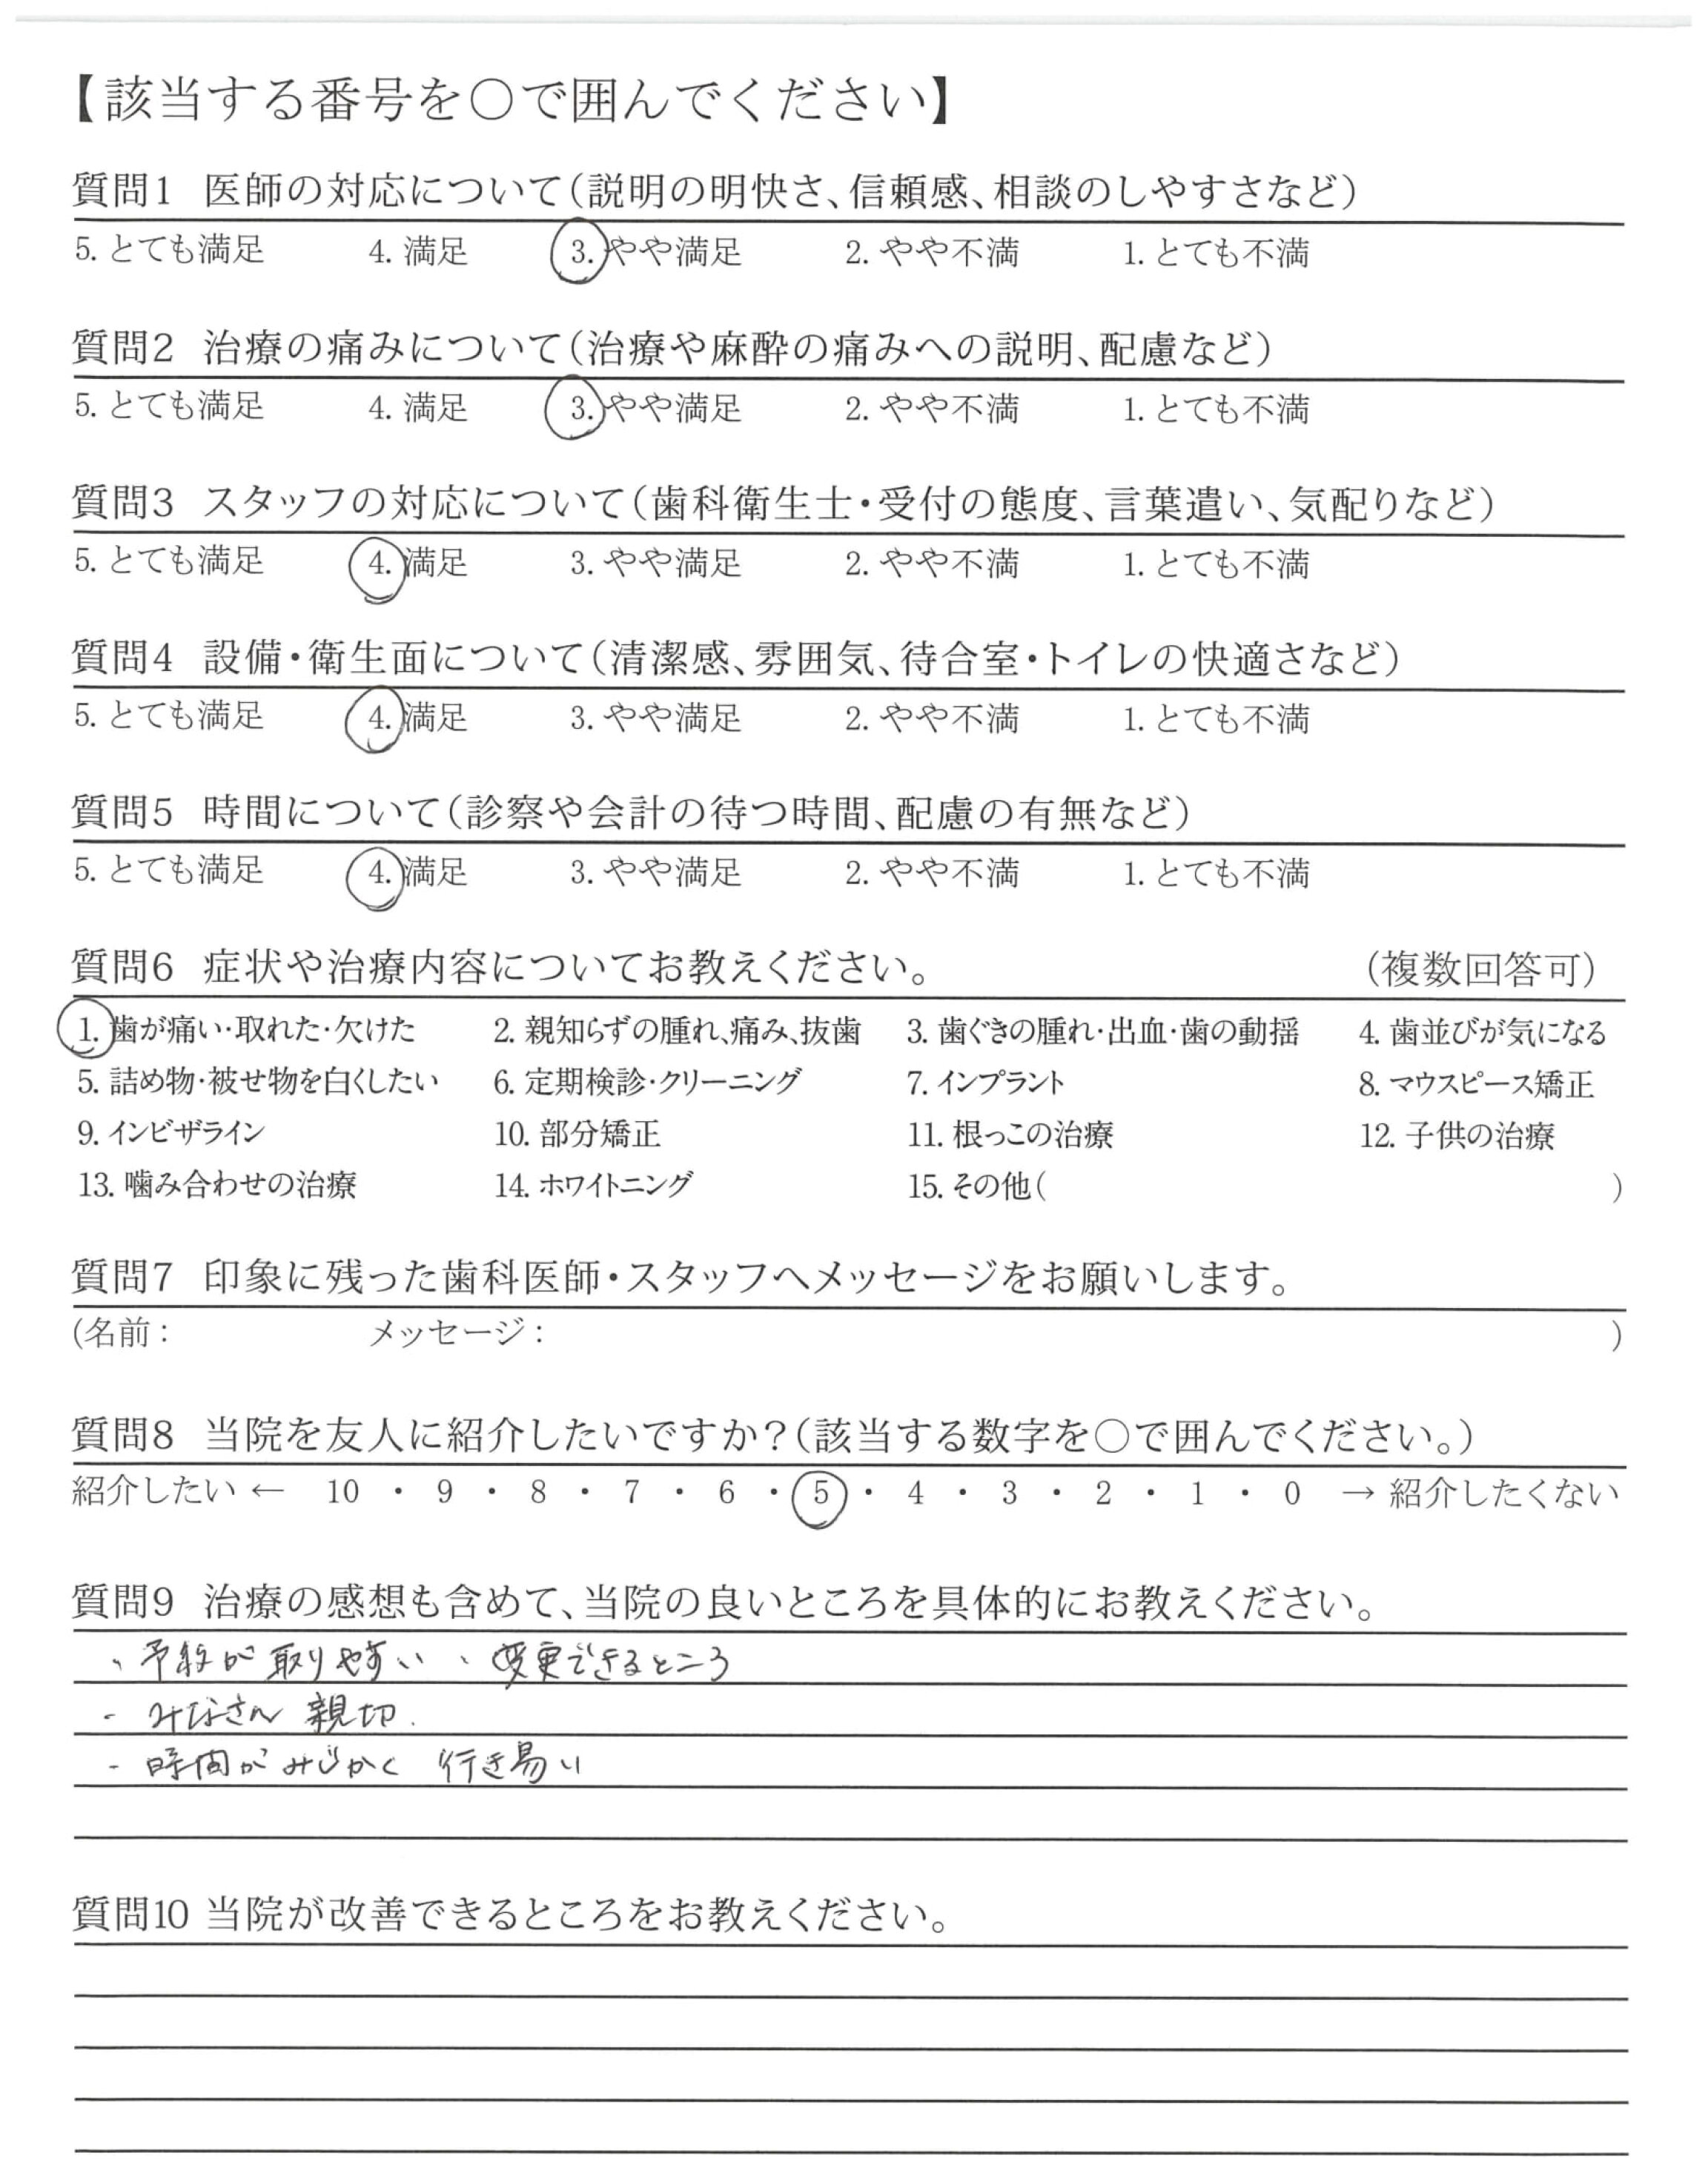 【該当する番号を○で囲んでください】
質問1 医師の対応について(説明の明快さ、信頼感、相談のしやすさなど)
5. とても満足 4. 満足 3. やや満足 2. やや不満 1. とても不満
質問2 治療の痛みについて(治療や麻酔の痛みへの説明、配慮など)
5. とても満足 4. 満足 3. やや満足 2. やや不満 1. とても不満
質問3 スタッフの対応について(歯科衛生士・受付の態度、言葉遣い、気配りなど)
5. とても満足 4. 満足 3. やや満足 2. やや不満 1. とても不満
質問4 設備・衛生面について(清潔感、雰囲気、待合室・トイレの快適さなど)
5. とても満足 4. 満足 3. やや満足 2. やや不満 1. とても不満
質問5 時間について(診察や会計の待つ時間、配慮の有無など)
5. とても満足 4. 満足 3. やや満足 2. やや不満 1. とても不満
質問6 症状や治療内容についてお教えください。 (複数回答可)
1. 歯が痛い・取れた・欠けた 2. 親知らずの腫れ、痛み、抜歯 3. 歯ぐきの腫れ・出血・歯の動揺 4. 歯並びが気になる
5. 詰め物・被せ物を白くしたい 6. 定期検診・クリーニング 7. インプラント 8. マウスピース矯正
9. インビザライン 10. 部分矯正 11. 根っこの治療 12. 子供の治療
13. 噛み合わせの治療 14. ホワイトニング 15. その他( )
質問7 印象に残った歯科医師・スタッフへメッセージをお願いします。
(名前: メッセージ: )
質問8 当院を友人に紹介したいですか?(該当する数字を○で囲んでください。)
紹介したい ← 10 ・ 9 ・ 8 ・ 7 ・ 6 ・ 5 ・ 4 ・ 3 ・ 2 ・ 1 ・ 0 → 紹介したくない
質問9 治療の感想も含めて、当院の良いところを具体的にお教えください。
、予約が取りやすい、変更できるところ
- みなさん 親切.
- 時間がみじかく 行き易い
質問10 当院が改善できるところをお教えください。